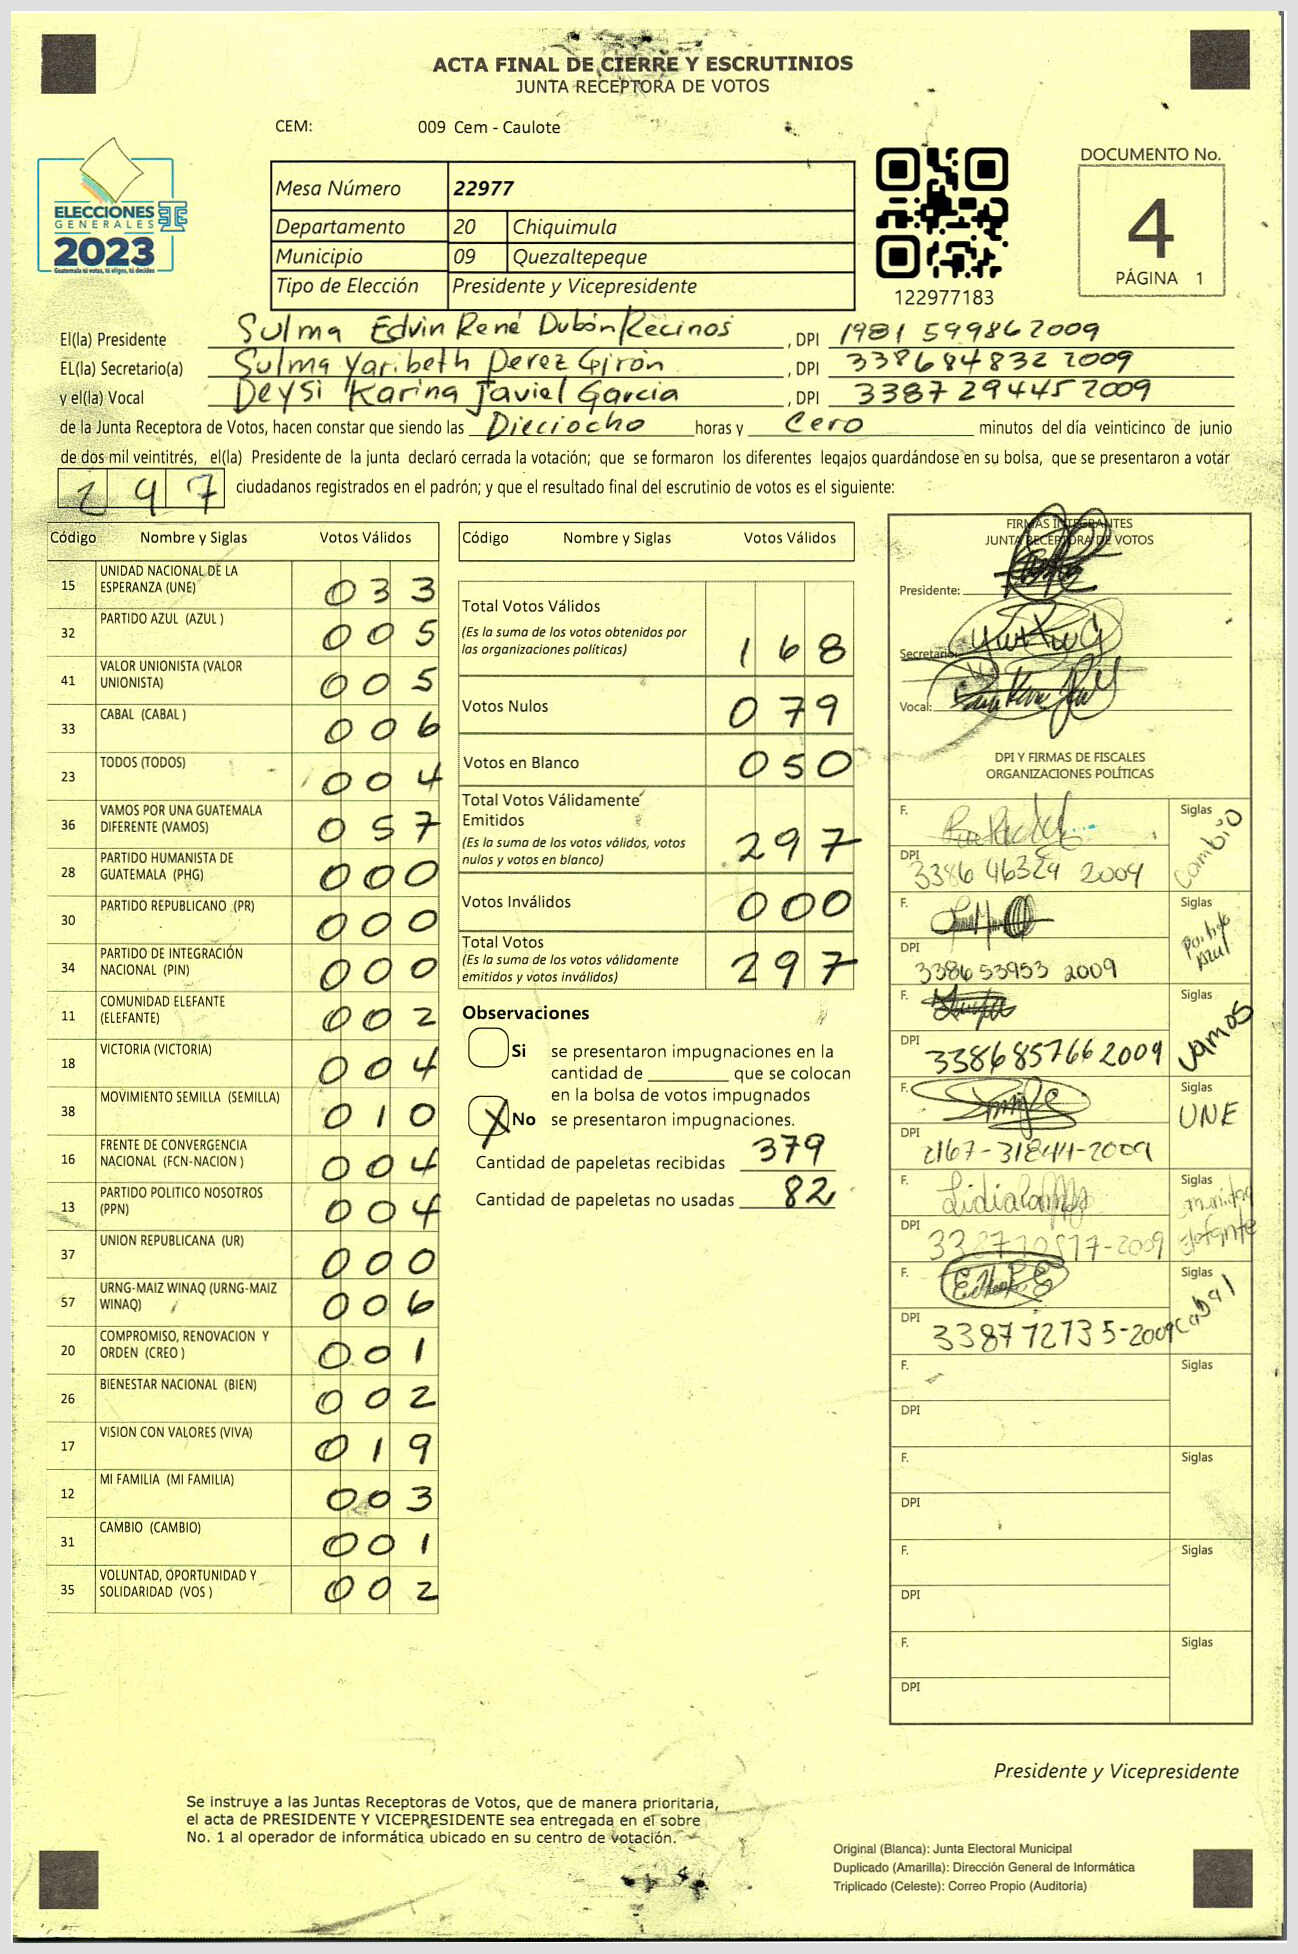 ACTA FINAL DE CIERRE Y ESCRUTINIOS
JUNTA RECEPTORA DE VOTOS
CEM: 009 Cem - Caulote
ELECCIONES
GENERALES
2023
Guatemala tú votas, tú eliges, tú decides
Mesa Número 22977
Departamento 20 Chiquimula
Municipio 09 Quezaltepeque
Tipo de Elección Presidente y Vicepresidente
122977183
DOCUMENTO No.
4
PÁGINA 1
El(la) Presidente Sulma Edvin René Dubón Recinos , DPI 1981 59986 2009
EL(la) Secretario(a) Sulma Yaribeth Perez Girón , DPI 338684832 2009
y el(la) Vocal Deysi Karina Javiel Garcia , DPI 3387 29445 2009
de la Junta Receptora de Votos, hacen constar que siendo las Dieciocho horas y Cero minutos del día veinticinco de junio
de dos mil veintitrés, el(la) Presidente de la junta declaró cerrada la votación; que se formaron los diferentes legajos quardándose en su bolsa, que se presentaron a votar
297 ciudadanos registrados en el padrón; y que el resultado final del escrutinio de votos es el siguiente:
Código Nombre y Siglas Votos Válidos
15 UNIDAD NACIONAL DE LA ESPERANZA (UNE) 033
32 PARTIDO AZUL (AZUL ) 005
41 VALOR UNIONISTA (VALOR UNIONISTA) 005
33 CABAL (CABAL ) 006
23 TODOS (TODOS) 004
36 VAMOS POR UNA GUATEMALA DIFERENTE (VAMOS) 057
28 PARTIDO HUMANISTA DE GUATEMALA (PHG) 000
30 PARTIDO REPUBLICANO (PR) 000
34 PARTIDO DE INTEGRACIÓN NACIONAL (PIN) 000
11 COMUNIDAD ELEFANTE (ELEFANTE) 002
18 VICTORIA (VICTORIA) 004
38 MOVIMIENTO SEMILLA (SEMILLA) 010
16 FRENTE DE CONVERGENCIA NACIONAL (FCN-NACION ) 004
13 PARTIDO POLITICO NOSOTROS (PPN) 004
37 UNION REPUBLICANA (UR) 000
57 URNG-MAIZ WINAQ (URNG-MAIZ WINAQ) 006
20 COMPROMISO, RENOVACION Y ORDEN (CREO ) 001
26 BIENESTAR NACIONAL (BIEN) 002
17 VISION CON VALORES (VIVA) 019
12 MI FAMILIA (MI FAMILIA) 003
31 CAMBIO (CAMBIO) 001
35 VOLUNTAD, OPORTUNIDAD Y SOLIDARIDAD (VOS ) 002
Código Nombre y Siglas Votos Válidos
Total Votos Válidos
(Es la suma de los votos obtenidos por
las organizaciones políticas) 168
Votos Nulos 079
Votos en Blanco 050
Total Votos Válidamente
Emitidos
(Es la suma de los votos válidos, votos
nulos y votos en blanco) 297
Votos Inválidos 000
Total Votos
(Es la suma de los votos válidamente
emitidos y votos inválidos) 297
Observaciones
Si se presentaron impugnaciones en la
cantidad de que se colocan
en la bolsa de votos impugnados
X No se presentaron impugnaciones.
Cantidad de papeletas recibidas 379
Cantidad de papeletas no usadas 82
FIRMAS INTEGRANTES
JUNTA RECEPTORA DE VOTOS
Presidente:
Secretario:
Vocal:
DPI Y FIRMAS DE FISCALES
ORGANIZACIONES POLÍTICAS
F. Siglas Cambio
DPI 3386 46329 2009
F. Siglas Partido Azul
DPI 3386 53953 2009
F. Siglas Vamos
DPI 3386857662009
F. Siglas UNE
DPI 2167-31844-2009
F. Siglas Elefante
DPI
F. Siglas Cabal
DPI 338772735-2009
F. Siglas
DPI
F. Siglas
DPI
F. Siglas
DPI
F. Siglas
DPI
Presidente y Vicepresidente
Se instruye a las Juntas Receptoras de Votos, que de manera prioritaria,
el acta de PRESIDENTE Y VICEPRESIDENTE sea entregada en el sobre
No. 1 al operador de informática ubicado en su centro de votación.
Original (Blanca): Junta Electoral Municipal
Duplicado (Amarilla): Dirección General de Informática
Triplicado (Celeste): Correo Propio (Auditoría)